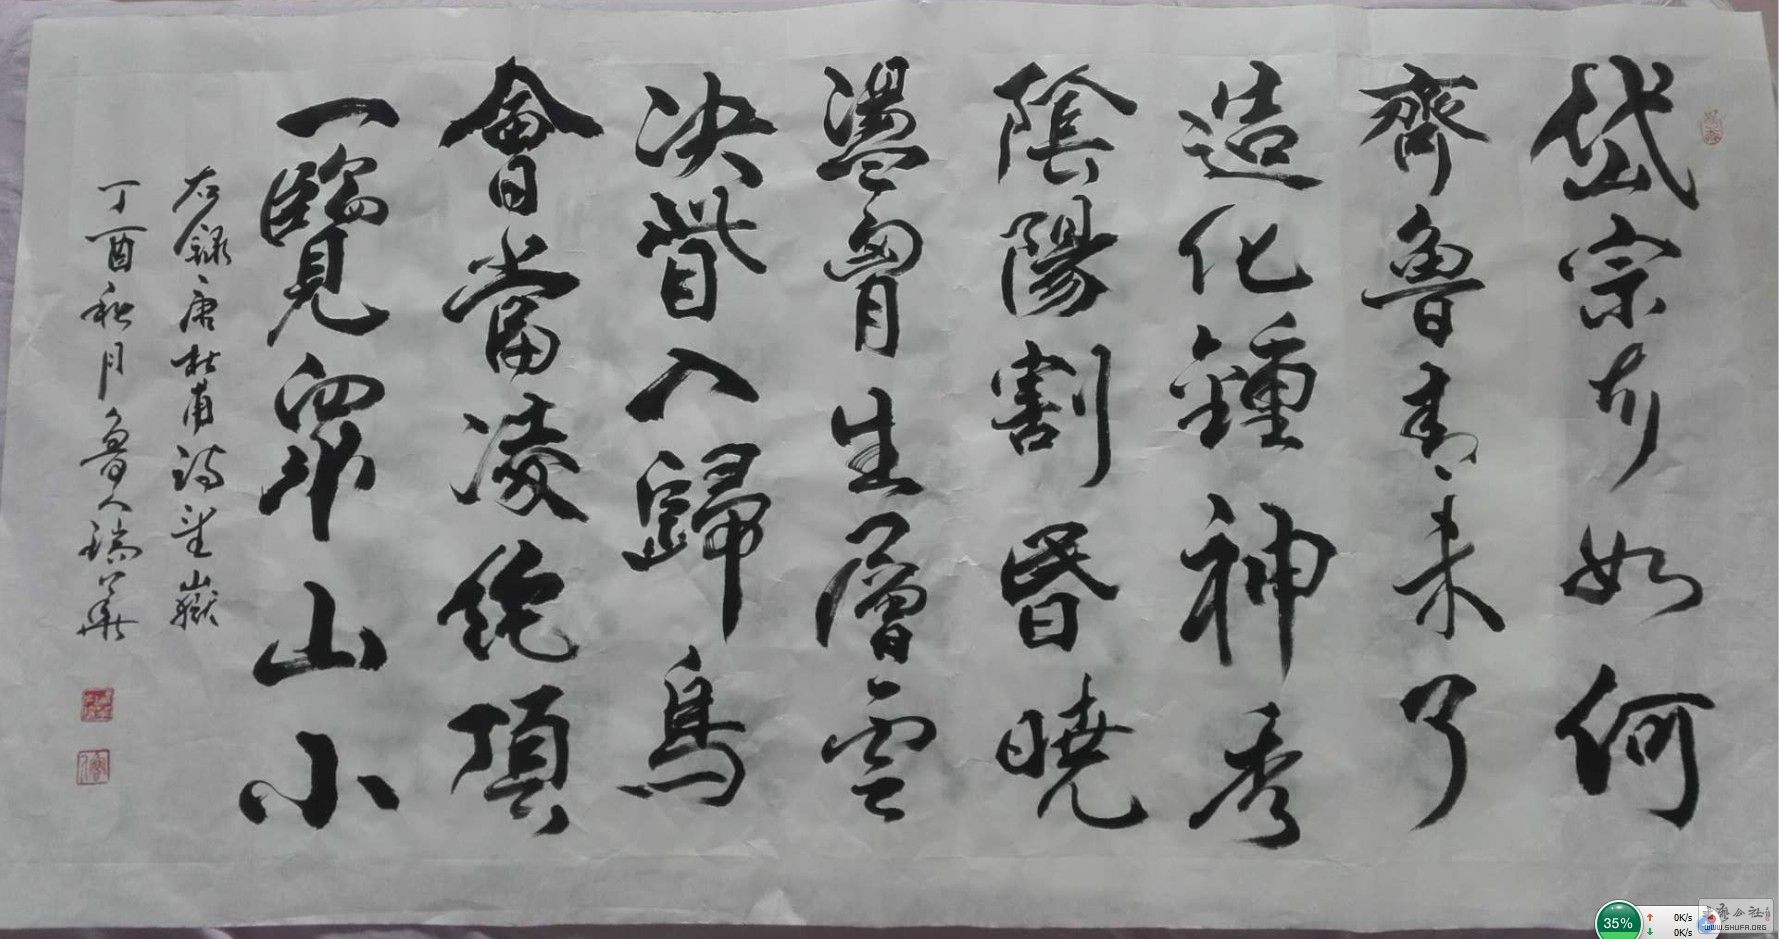 岱宗夫如何
齊魯青未了
造化鍾神秀
陰陽割昏曉
盪胷生層雲
決眥入歸鳥
會當凌絶頂
一覽眾山小
右錄唐杜甫詩望嶽
丁酉秋月魯人瑞華
35%
0K/s
0K/s
WWW.SHUFA.ORG